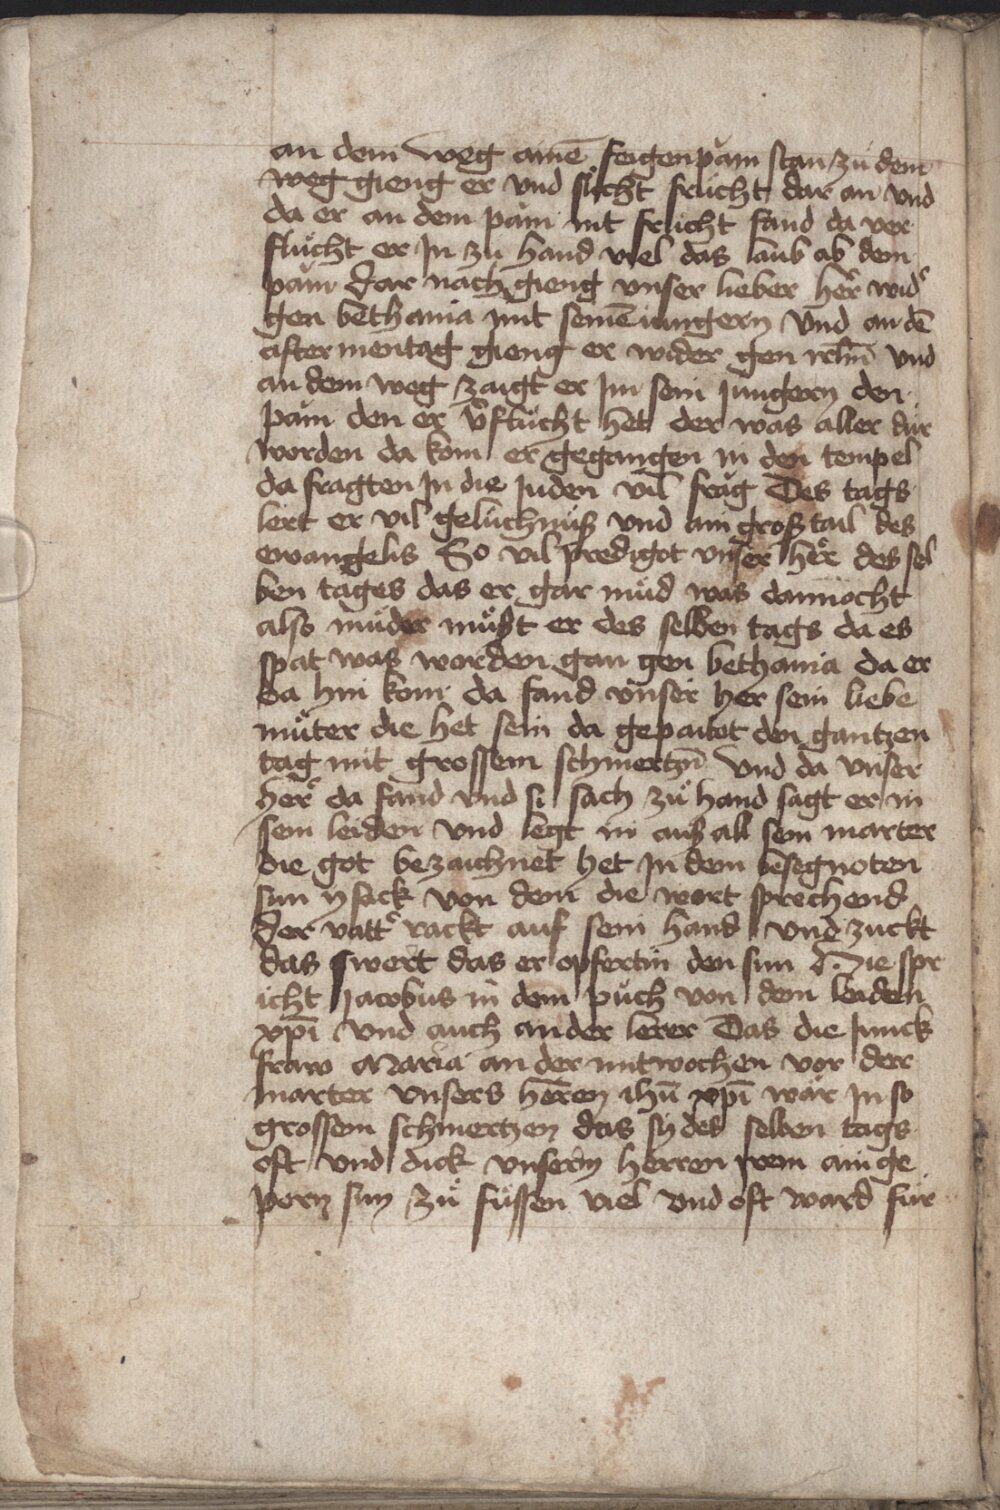 an dem weg ainē feigenpam̄ stan zu dem
weg gieng er vnd sůcht frucht dar an vnd
da er an dem pam nit frücht fand da ver
flucht er In zu hand viel das laub ab dem
pam dar nach gieng vnser lieber her wid͛
gen bethania mit seinē iungern vnd an dē
aftermentag gieng er wider gen irl̄m vnd
an dem weg zaigt er Im sein Jungern den
pam den er v͛flucht het der was aller dür
worden da kom er gegangen in den tempel
da fragten In die Juden vil frag Des tags
lert er vil geluchnuß vnd ain groß tail des
ewangelis So vil predigot vnser her des sel
ben tages das er gar müd was dannocht
also müder můst er des selben tags da es
spat was worden gan gen bethania da er
da hin kom da fand vnser her sein liebe
můter die het sein da gepaitet den gantzen
tag mit grossem schmertzn̄ vnd da vnser
her͛ da fand vnd si sach zů hand sagt er in
sein leiden vnd legt in auß all sein marter
die got bezaichnet het In dem besegnoten
sun ysack von dem die wort sprechend
Der vatt͛ rackt auf sein hand vnd zuckt
das swert das er opfertin den sun Die spr
icht Jacobus in dem půch von dem leiden
xp̄i vnd auch ander lerer Das die Junck
fraw Maria an der mitwochen vor der
marter vnsers herren ih̄u xp̄i wär In so
grossem schmertzen das sy des selben tags
oft vnd dick vnserm herren irem ainge
porn sun zů füssen viel vnd oft ward für